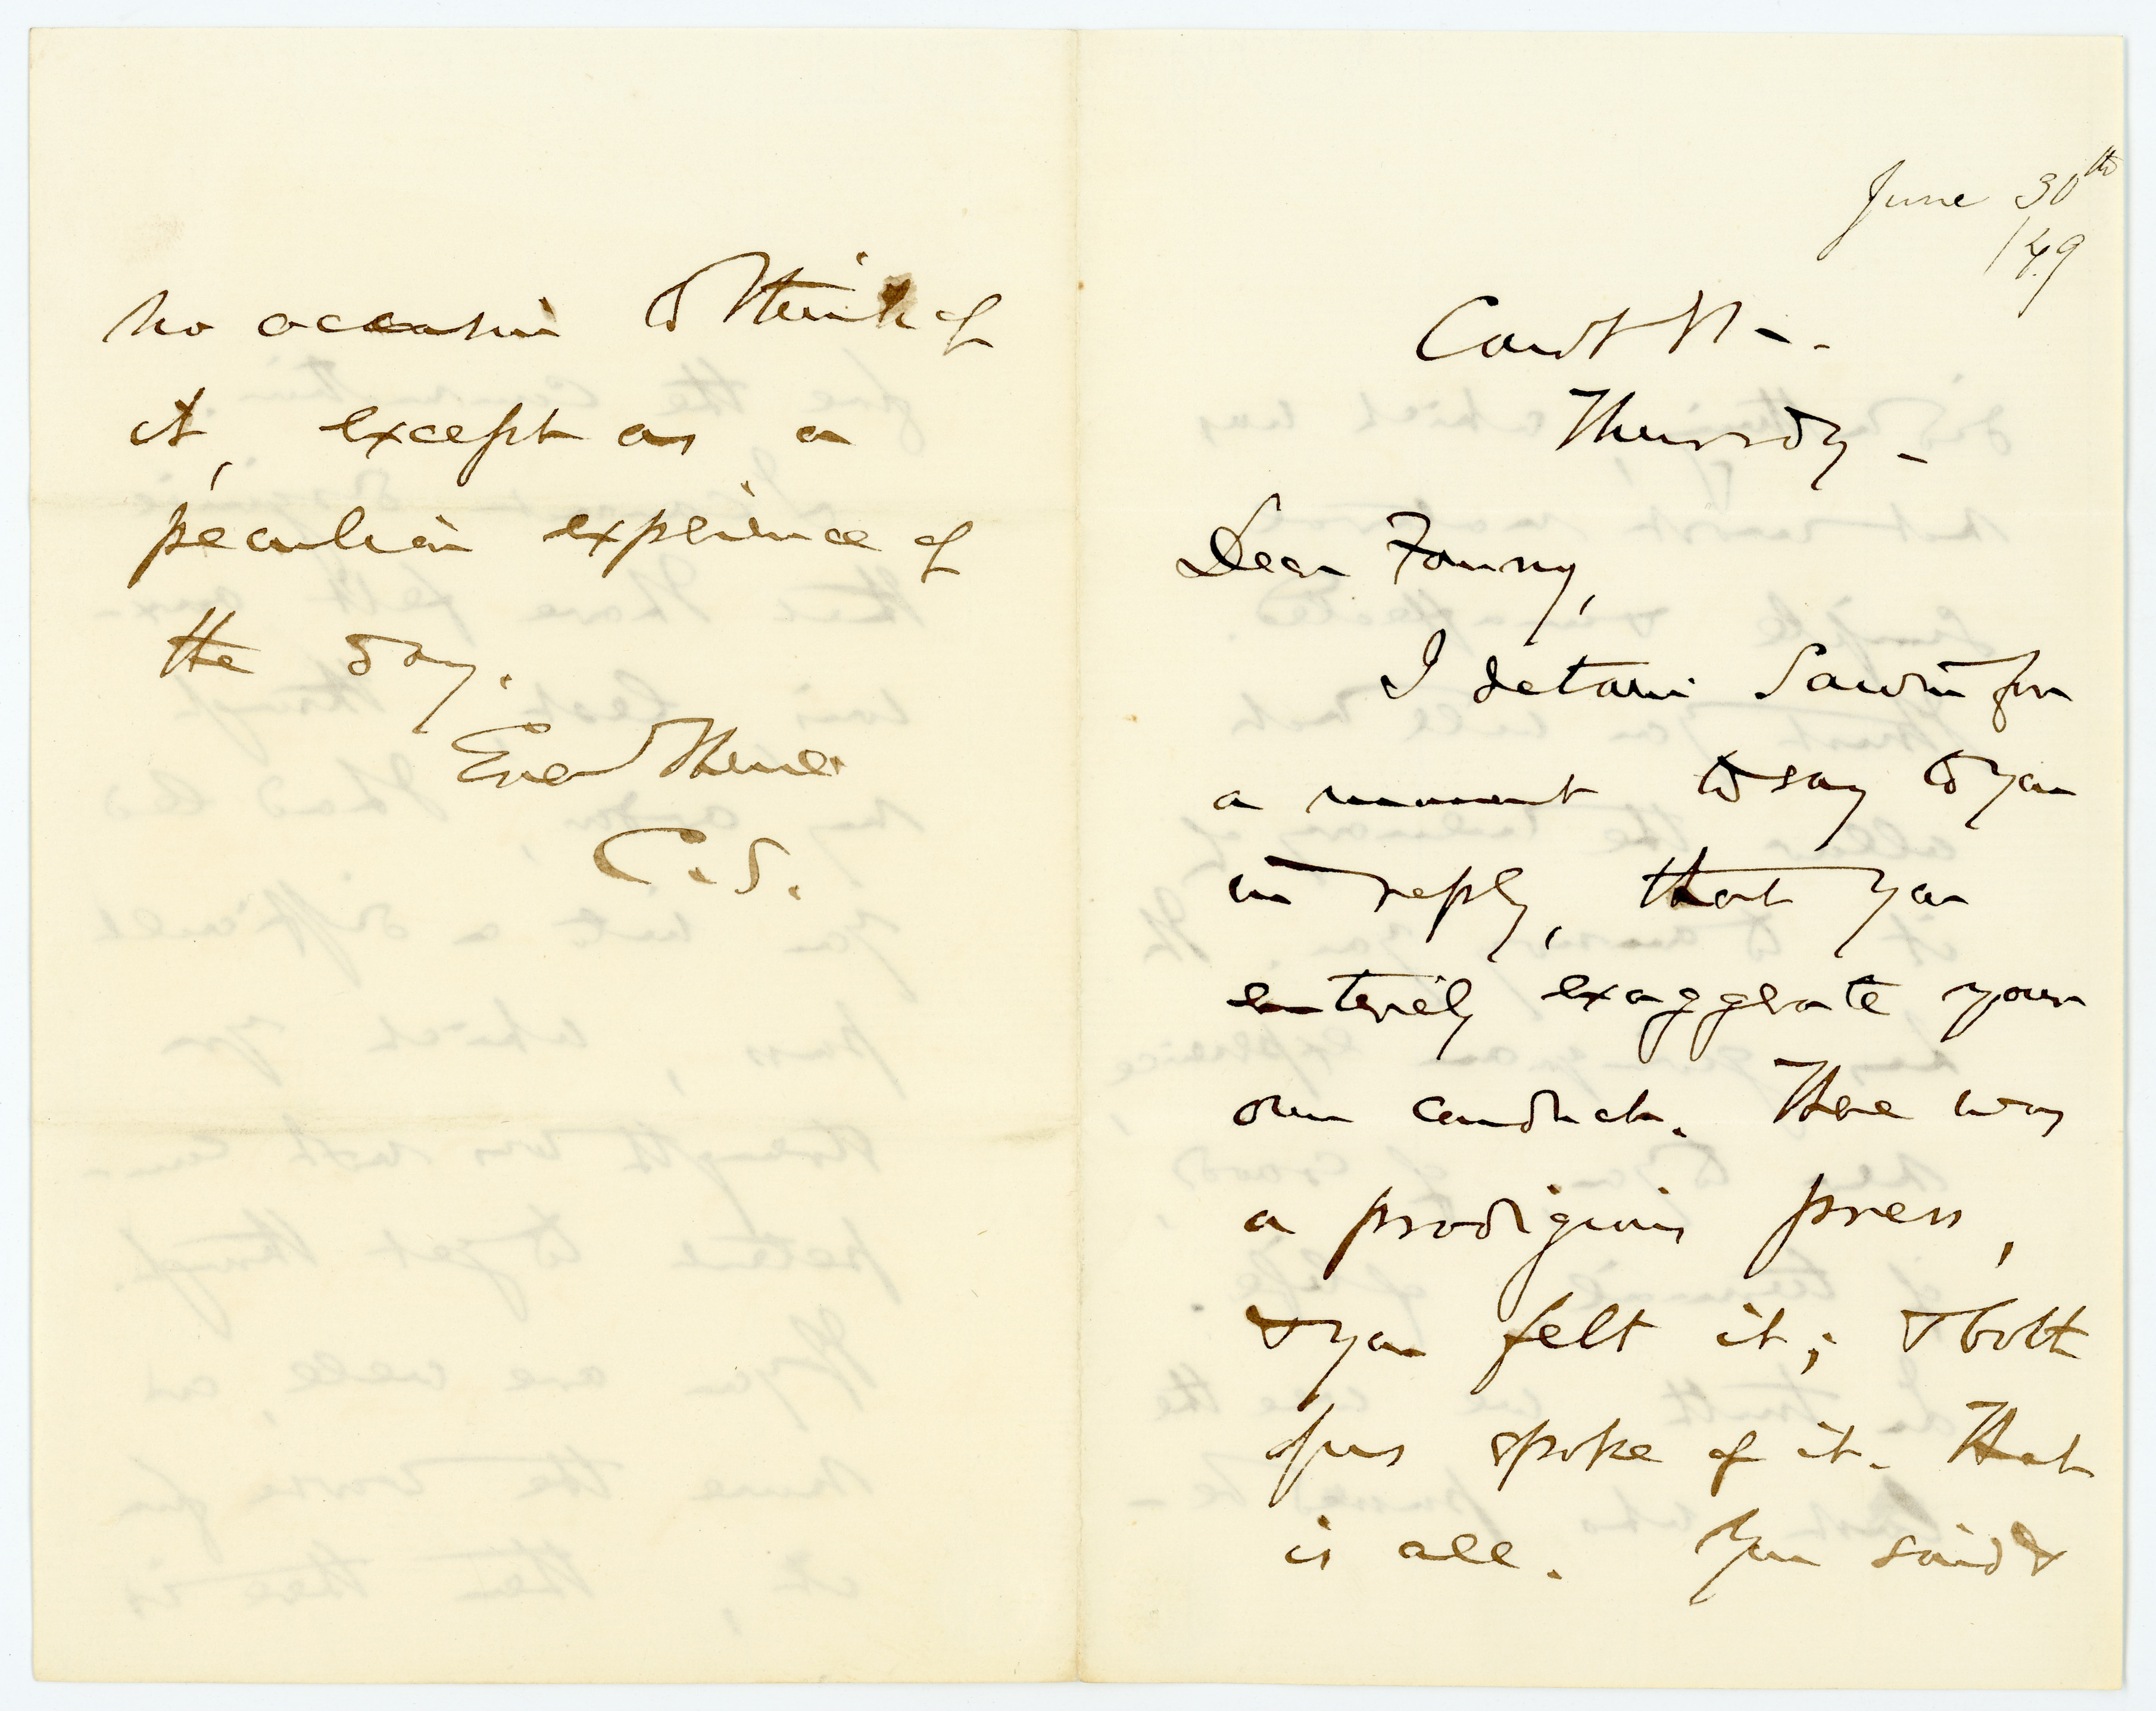 June 30th
/49
Court St -.
Thursday -
Dear Fanny,
I detain Sawin for
a moment to say to you
in reply, that you
entirely exaggerate your
own conduct. There was
a prodigious press,
& you felt it; & both
of us spoke of it. That
is all. You said &
no occasion to think of
it, except as a
peculiar experience of
the day.
Ever Thine
C. S.